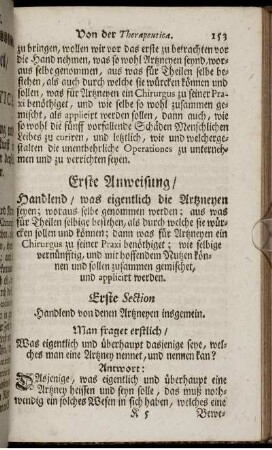 Von der Therapeutica. 153
zu bringen, wollen wir vor das erste zu betrachten vor
die Hand nehmen, was so wohl Artzneyen seynd, wor-
aus selbe genommen, aus was für Theilen selbe be-
stehen, als auch durch welche sie würcken können und
sollen, was für Artzneyen ein Chirurgus zu seiner Pra-
xi benöthiget, und wie selbe so wohl zusammen ge-
mischt, als applicirt werden sollen, dann auch, wie
so wohl die fünff vorfallende Schäden Menschlichen
Leibes zu curiren, und letztlich, wie und welcherge-
stalten die unentbehrliche Operationes zu unterneh-
men und zu verrichten seyen.
Erste Anweisung/
Handlend/ was eigentlich die Artzneyen
seyen; woraus selbe genommen werden; aus was
für Theilen selbige bestehen, als durch welche sie wür-
cken sollen und können; dann was für Artzneyen ein
Chirurgus zu seiner Praxi benöthiget; wie selbige
vernünfftig, und mit hoffendem Nutzen kön-
nen und sollen zusammen gemischet,
und applicirt werden.
Erste Section
Handlend von denen Artzneyen insgemein.
Man fraget erstlich/
Was eigentlich und überhaupt dasjenige seye, wel-
ches man eine Artzney nennet, und nennen kan?
Antwort:
DAsjenige, was eigentlich und überhaupt eine
Artzney heissen und seyn solle, das muß noth-
wendig ein solches Wesen in sich haben, welches eine
K 5 Bewe-